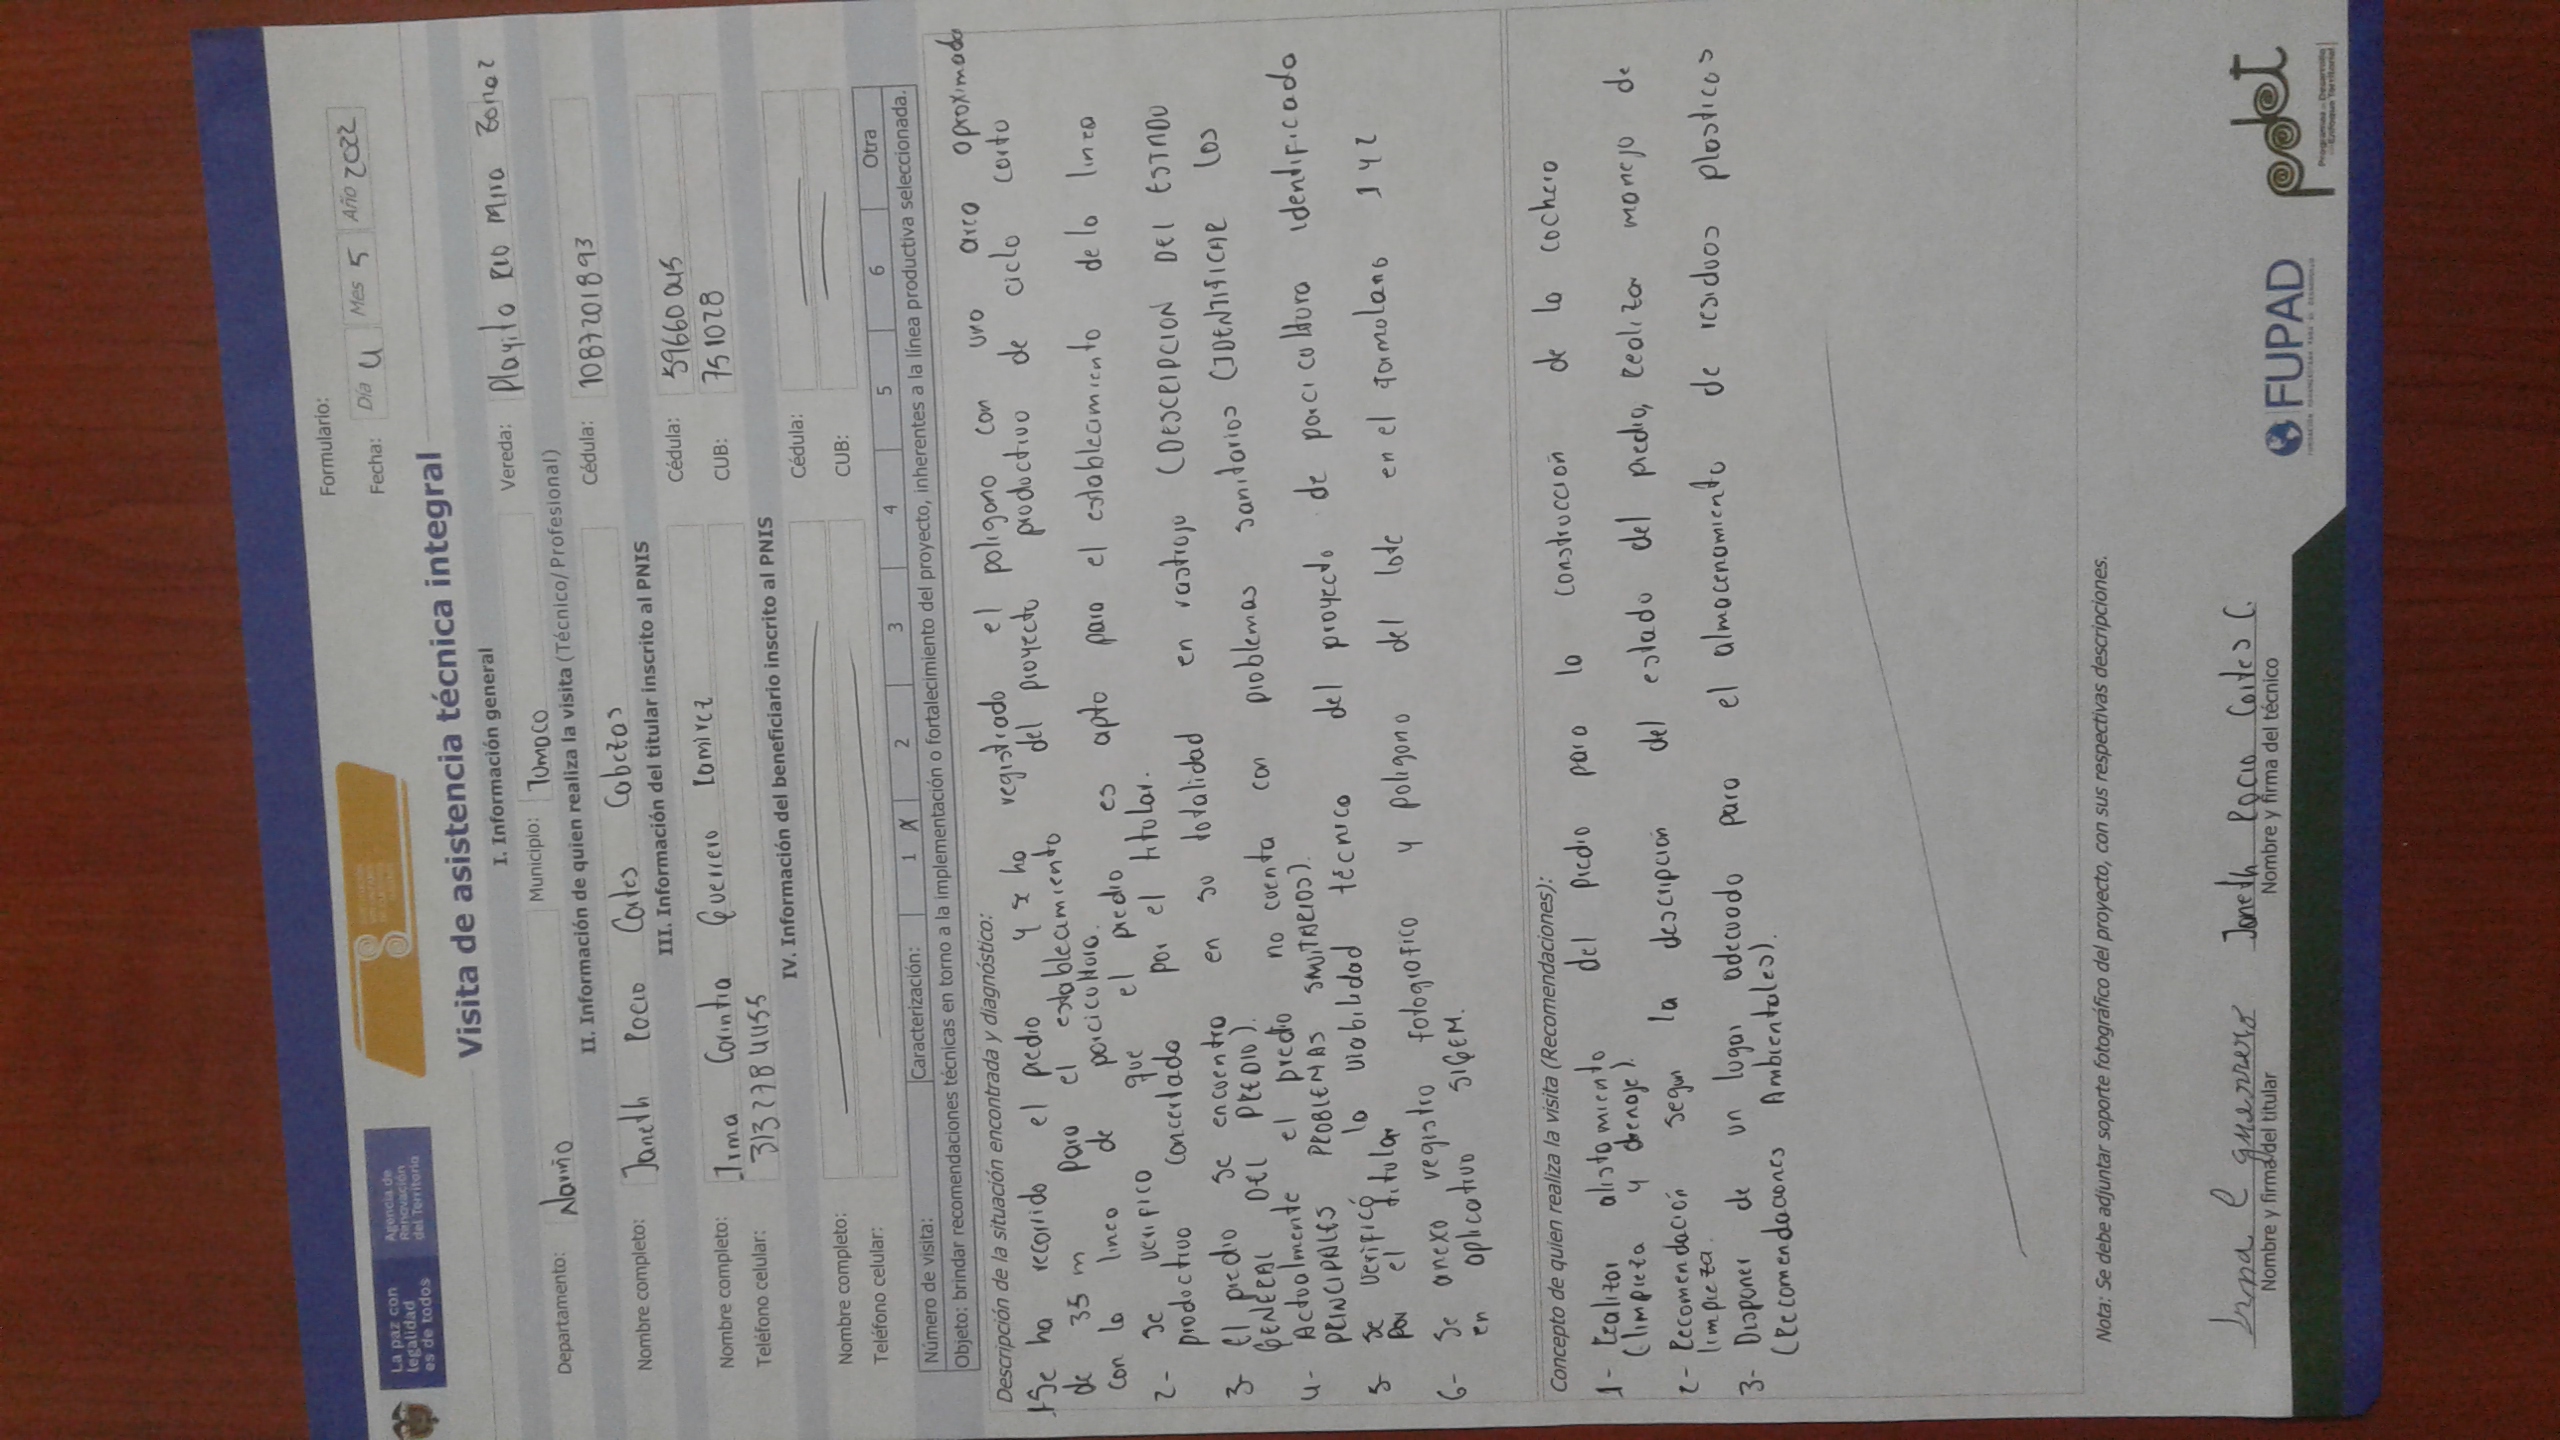 La paz con
legalidad
es de todos
Agencia de
Renovación
del Territorio
Formulario:
Fecha: Día 4 Mes 5 Año 2022
Visita de asistencia técnica integral
I. Información general
Departamento: Nariño Municipio: Tumaco Vereda: Playita Rio Mira Zona2
II. Información de quien realiza la visita (Técnico/Profesional)
Nombre completo: Janeth Rocio Cortes Cabezas Cédula: 1087201893
III. Información del titular inscrito al PNIS
Nombre completo: Irma Corintia Guerrero Ramirez Cédula: 59660045
Teléfono celular: 3132784455 CUB: 751028
IV. Información del beneficiario inscrito al PNIS
Nombre completo: Cédula:
Teléfono celular: CUB:
Número de visita: Caracterización: 1 X 2 3 4 5 6 Otra
Objeto: brindar recomendaciones técnicas en torno a la implementación o fortalecimiento del proyecto, inherentes a la línea productiva seleccionada.
Descripción de la situación encontrada y diagnóstico:
1- Se ha recorrido el predio y se ha registrado el poligono con una area aproximada
de 35 m para el establecimiento del proyecto productivo de ciclo corto
con la linea de porcicultura.
2- Se verifico que el predio es apto para el establecimiento de la linea
productivo concertado por el titular.
3- El predio se encuentra en su totalidad en rastrojo (DESCRIPCION DEL ESTADO
GENERAL DEL PREDIO).
4- Actualmente el predio no cuenta con problemas sanitarios (IDENTIFICAR LOS
PRINCIPALES PROBLEMAS SANITARIOS).
5- se verificó la viabilidad técnica del proyecto de porcicultura identificado
por el titular
6- Se anexo registro fotografico y poligono del lote en el formulario 1 y 2
en aplicativo SIGEM.
Concepto de quien realiza la visita (Recomendaciones):
1- Realizar alistamiento del predio para la construccion de la cochera
(limpieza y drenaje).
2- Recomendación segun la descripcion del estado del predio, realizar manejo de
limpieza.
3- Disponer de un lugar adecuado para el almacenamiento de residuos plasticos
(Recomendaciones Ambientales).
Nota: Se debe adjuntar soporte fotográfico del proyecto, con sus respectivas descripciones.
Irma C Guerrero
Nombre y firma del titular
Janeth Rocio Cortes C.
Nombre y firma del técnico
FUPAD
pdet
Programas de Desarrollo
con Enfoque Territorial